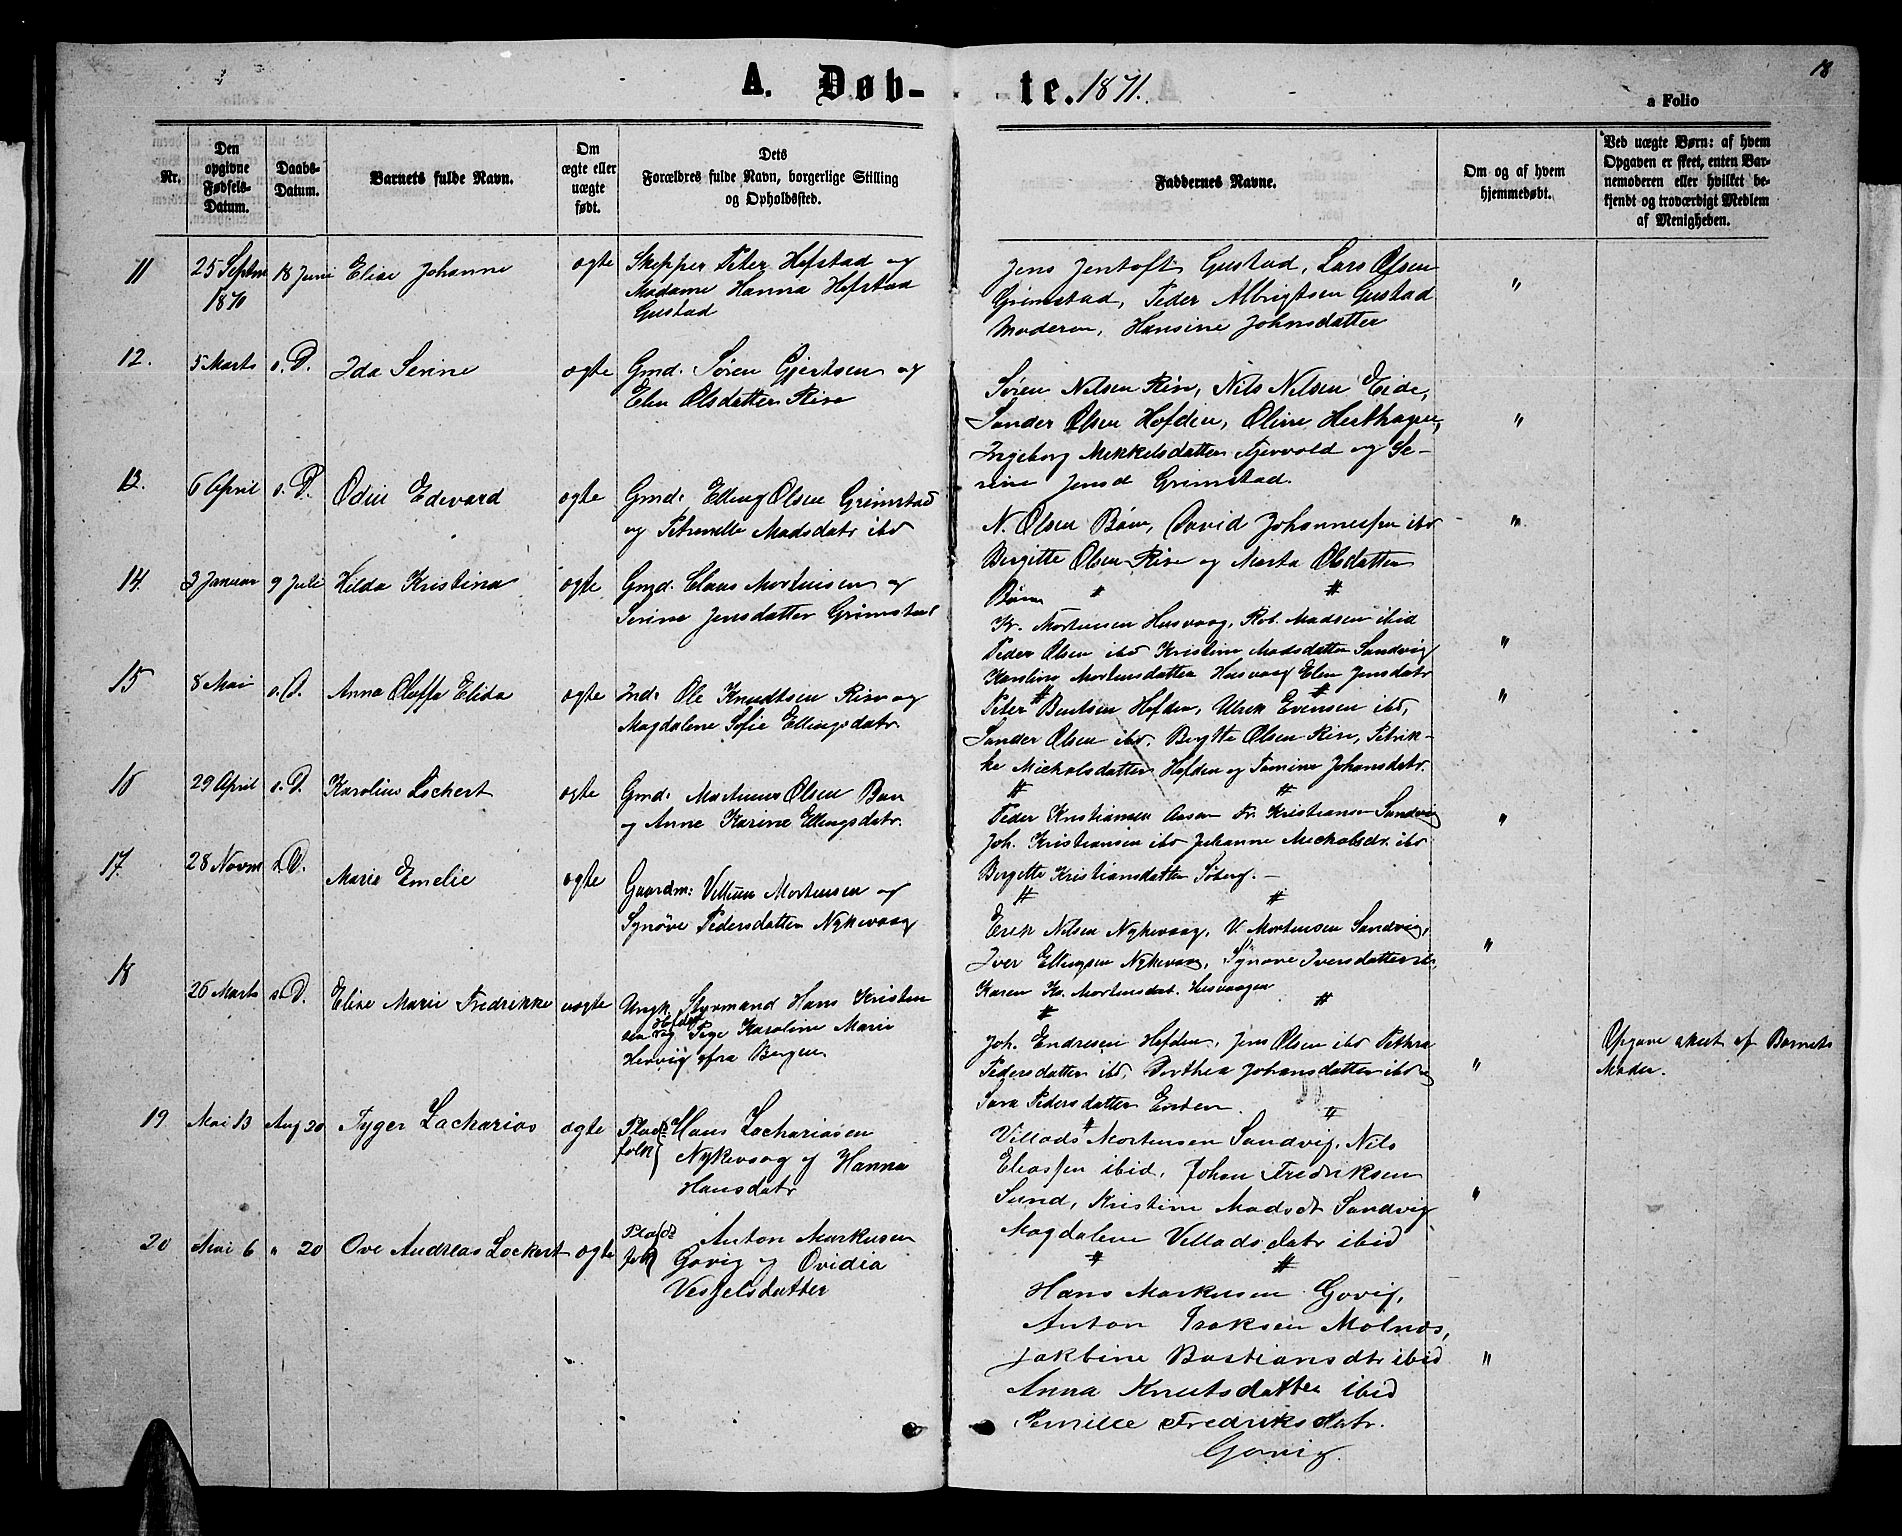 18
A. Døb- te. 1871.
a Folio
Nr.
Den opgivne Fødsels-Datum.
Daabs-Datum.
Barnets fulde Navn.
Om ægte eller uægte født.
Dets Forældres fulde Navn, borgerlige Stilling og Opholdssted.
Faddernes Navne.
Om og af hvem hjemmedøbt.
Ved uægte Børn: af hvem Opgaven er skeet, enten Barnemoderen eller hvilket bekjendt og troværdigt Medlem af Menigheden.
11 25 Septm 1870 18 Juni Elise Johanne ægte
Skipper Peter Hofstad og
Madame Hanna Hofstad
Gustad
Jens Jentoft Gustad, Lars Olsen
Grimstad, Peder Albrigtsen Gustad
Moderen, Hansine Johnsdatter "
12. 5 Marts s. D. Ida Serine ægte
Gmd. Søren Gjertsen og
Elen Olsdatter Rise
Søren Nilsen Rise, Nils Nilsen Eide,
Sander Olsen Hofden, Oline Hesthagen,
Ingeborg Mikkelsdatter Tjervold og Se-
rine Jensd Grimstad. "
13. 6 April s. D. Odin Edevard ægte
Gmd. Elling Olsen Grimstad
og Petrenelle Madsdatr ibd
N. Olsen Bøen, David Johannessen ibd
Bergitte Olsen Rise og Marta Olsdatter
Bøen "
14. 3 Januar 9 Juli Hilda Kristina ægte
Gmd. Claus Mortensen og
Serine Jensdatter Grimstad
Kr. Mortensen Husvaag, Rob. Madsen ibid
Peder Olsen ibd Kristine Madsdatter Sandvig
Karoline Mortensdatter Husvaag Elen Jensdatr "
15 8 Mai s. D. Anna Oluffa Elida ægte
Ind. Ole Knudtsen Rise og
Magdalene Sofie Ellingsdatr.
Peter Bentsen Hofden, Ulrik Evensen ibd,
Sander Olsen ibd. Bergitte Olsen Rise, Petrik-
ke Mickalsdatter Hofden og Tomine Johansdatr. "
16 29 April s. D. Karoline Lockert ægte
Gmd. Martinus Olsen Bøen
og Anne Karine Ellingsdatr.
Peder Kristiansen Aasen Fr. Kristiansen Sandvig
Joh. Kristiansen ibd Johanne Mickalsdr. ibd
Bergitte Kristiansdatter Søberg. "
17. 28 Novm s. D. Marie Emelie ægte
Gaardm: Villum Mortensen og
Synøve Pedersdatter Nykevaag
Erik Nilsen Nykevaag, V. Mortensen Sandvig,
Iver Ellingsen Nykevaag, Synøve Iversdatter
Karen Kr. Mortensdat. Husvaagen "
18 26 Marts s. D. Elise Marie Fredrikke uægte
Ungk. Styrmand Hans Kristen
sen Hofden og Pige Karoline Marie
Hervig fra Bergen
Joh. Endresen Hofden, Jens Olsen ibd Pethra
Pedersdatter ibd, Dorthea Johansdatter ibd og
Sara Pedersdatter "
Opgave skeet af Barnets
Moder.
19 Mai 13 Aug 20 Tyger Zacharias ægte
Plads-
folk
Hans Zachariasen
Nykevaag og Hanna
Hansdatr
Villads Mortensen Sandvig, Nils
Eliassen ibid, Johan Fredriksen
Sund, Kristine Madsdt Sandvig
Magdalene Villadsdatr ibid "
20 Mai 6 " 20 Ove Andreas Lockert ægte
Plads-
folk
Anton Markusen
Govig og Ovidia
Vesselsdatter
Hans Markusen Govig,
Anton Isaksen Molnøs,
Jakbine Bastiansdtr ibid
Anna Knutsdatter ibid
Pernille Fredriksdatr.
Govig. "